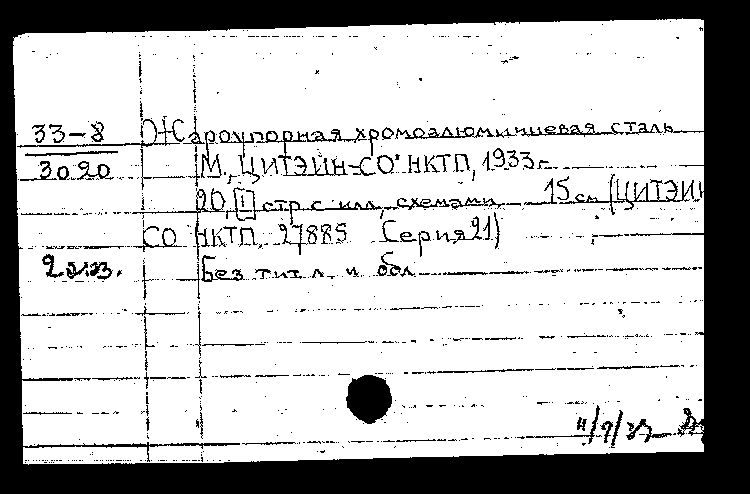 33-8 Жароупорная хромоалюминиевая сталь
3020 М., ЦИТЭИН-СО НКТП, 1933.-
20, [1] стр. с илл., схемами. 15 см (ЦИТЭИН
СО НКТП. 27885 Серия 21)
2 экз. Без тит. л. и обл.
11/9/33